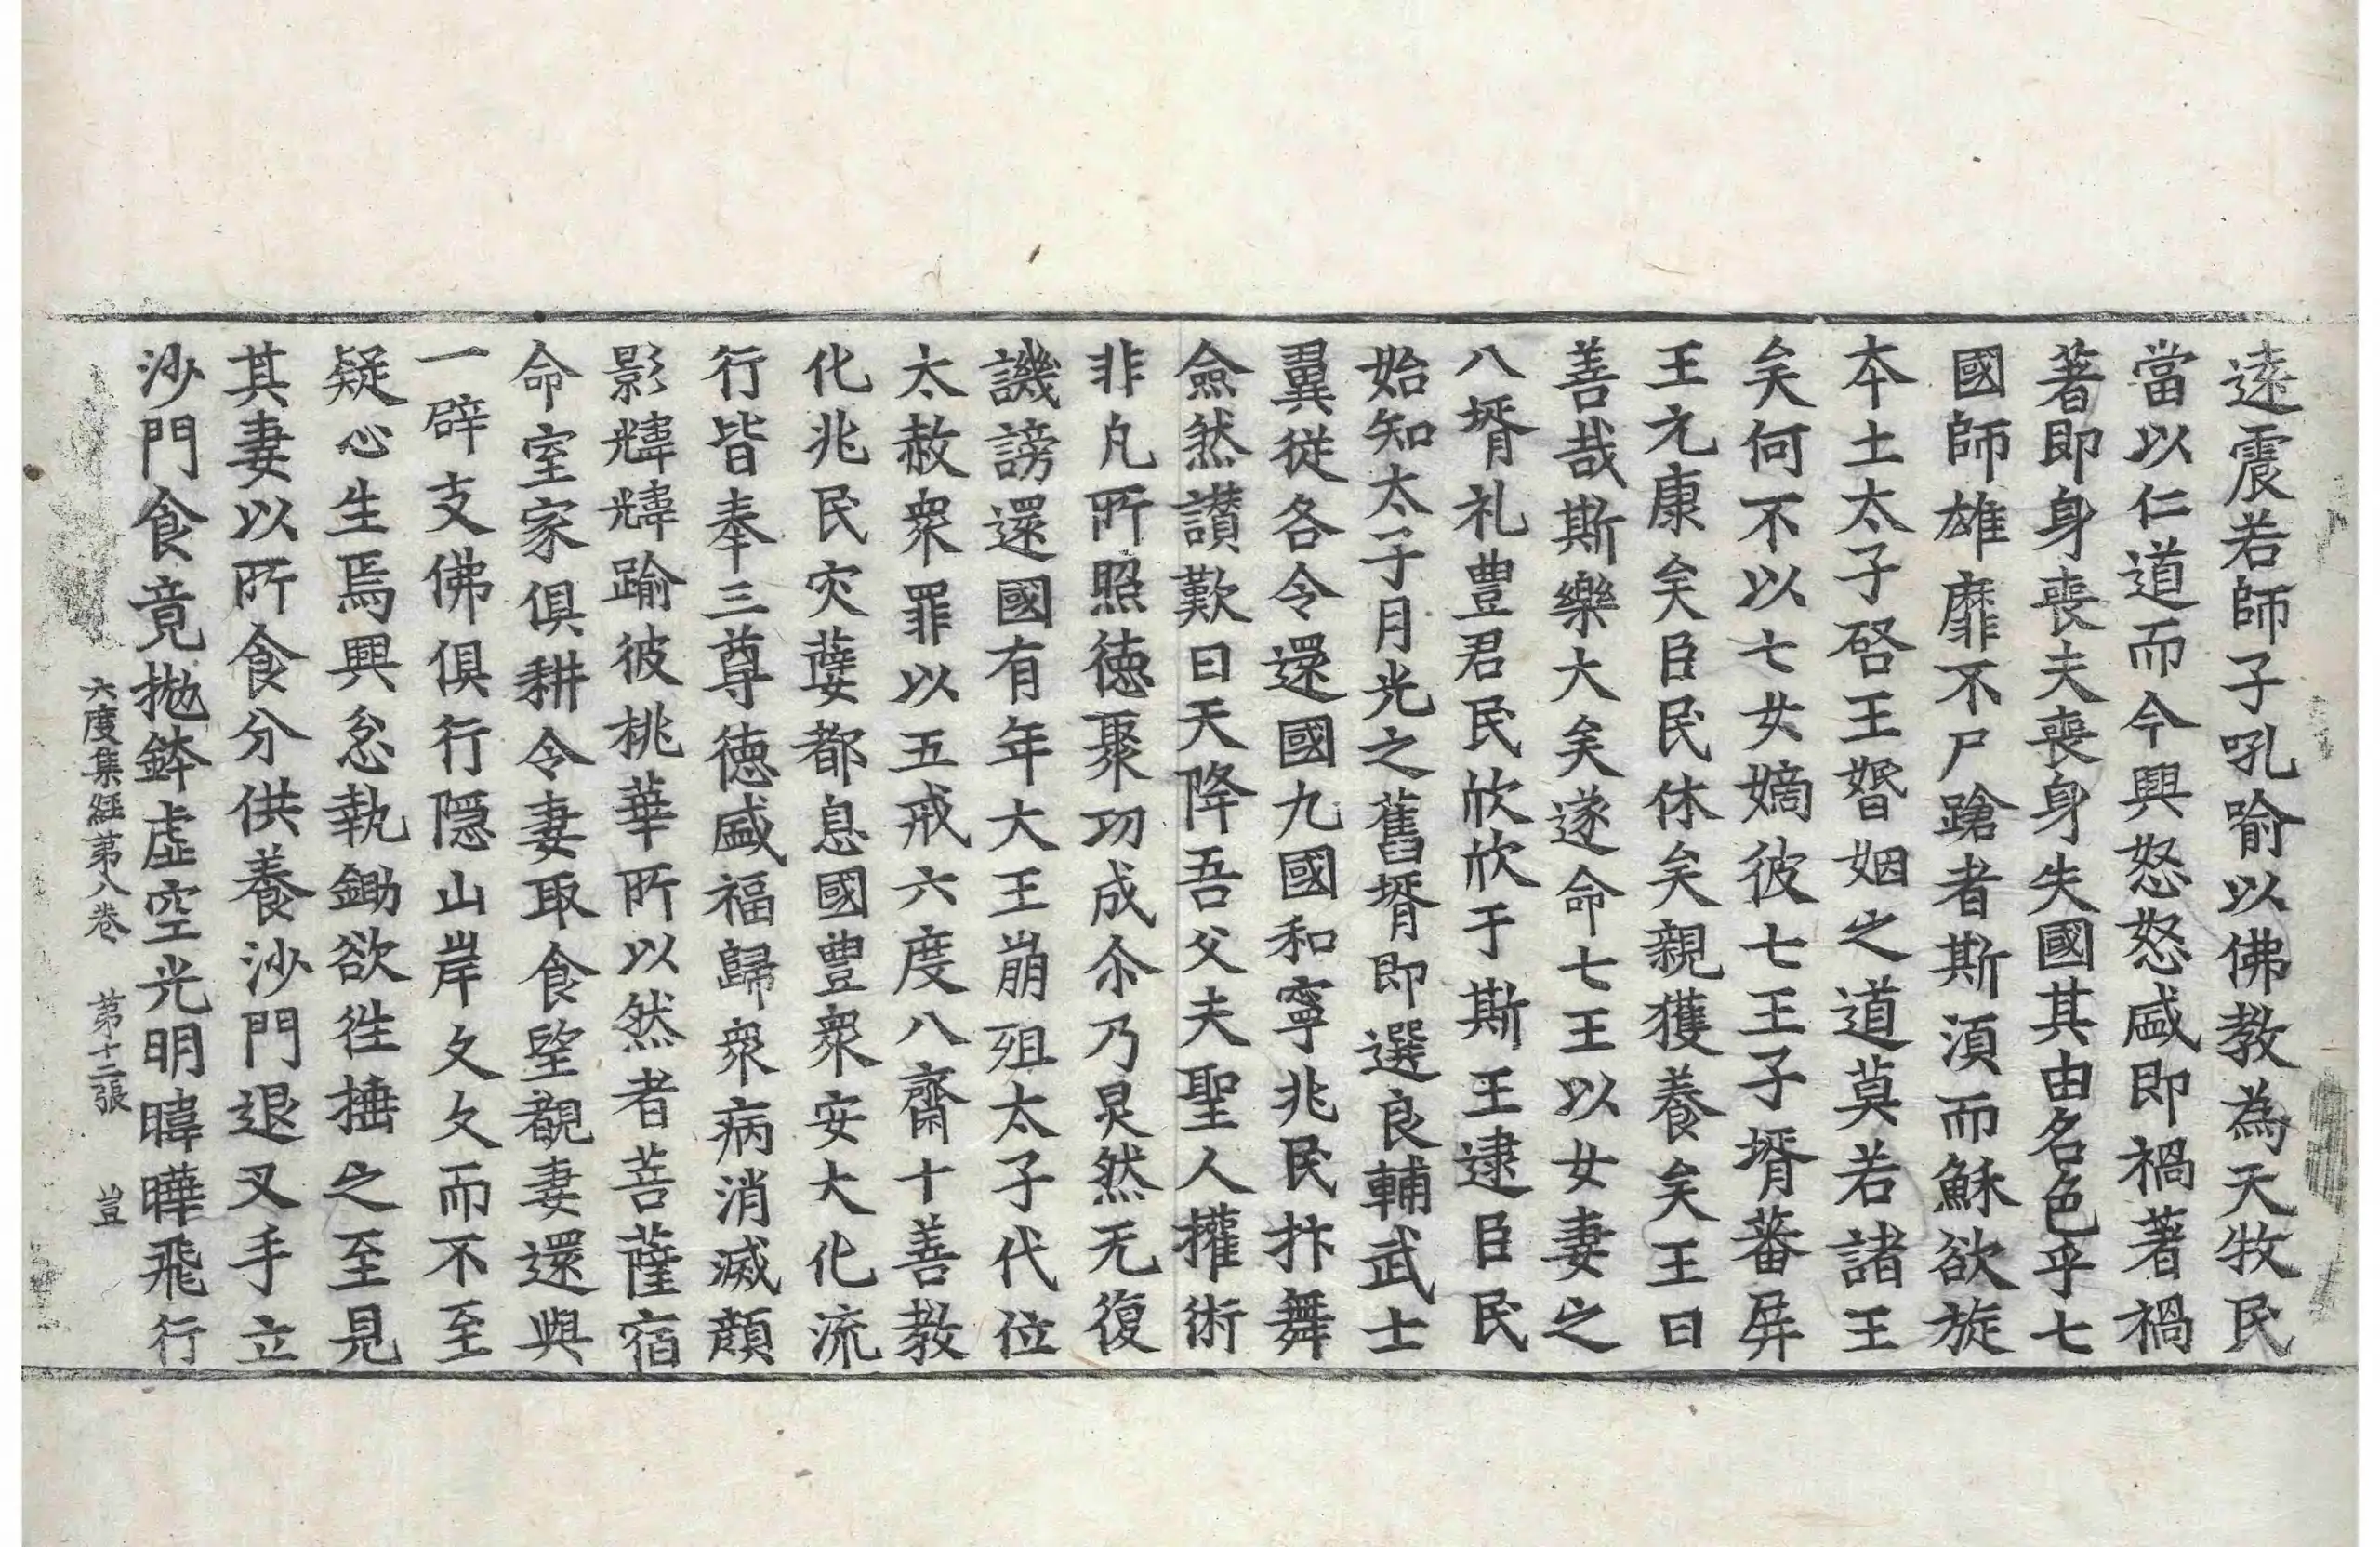 遠震若師子吼喻以佛教為天牧民
當以仁道而今興怒怒盛即禍著禍
著即身喪夫喪身失國其由名色乎七
國師雄靡不尸蹌者斯湏而穌欲旋
本土太子啓王婚姻之道莫若諸王
矣何不以七女嫡彼七王子壻蕃屏
王元康矣臣民休矣親獲養矣王曰
善哉斯樂大矣遂命七王以女妻之
八壻礼豊君民欣欣于斯王逮臣民
始知太子月光之舊壻即選良輔武士
翼從各令還國九國和寧兆民抃舞
僉然讃歎曰天降吾父夫聖人㩲術
非凡所照德聚功成尒乃炅然无復
譏謗還國有年大王崩殂太子代位
太赦衆罪以五戒六度八齋十善教
化兆民灾孽都息國豊衆安大化流
行皆奉三尊德盛福歸衆病消滅顔
影煒煒踰彼桃華所以然者菩薩宿
命室家俱耕令妻取食望覩妻還與
一辟支佛俱行隱山岸久久而不至
疑心生焉興忿執鋤欲徃捶之至見
其妻以所食分供養沙門退叉手立
沙門食竟拋鉢虛空光明暐曄飛行
六度集經苐八卷 苐十二張 豈